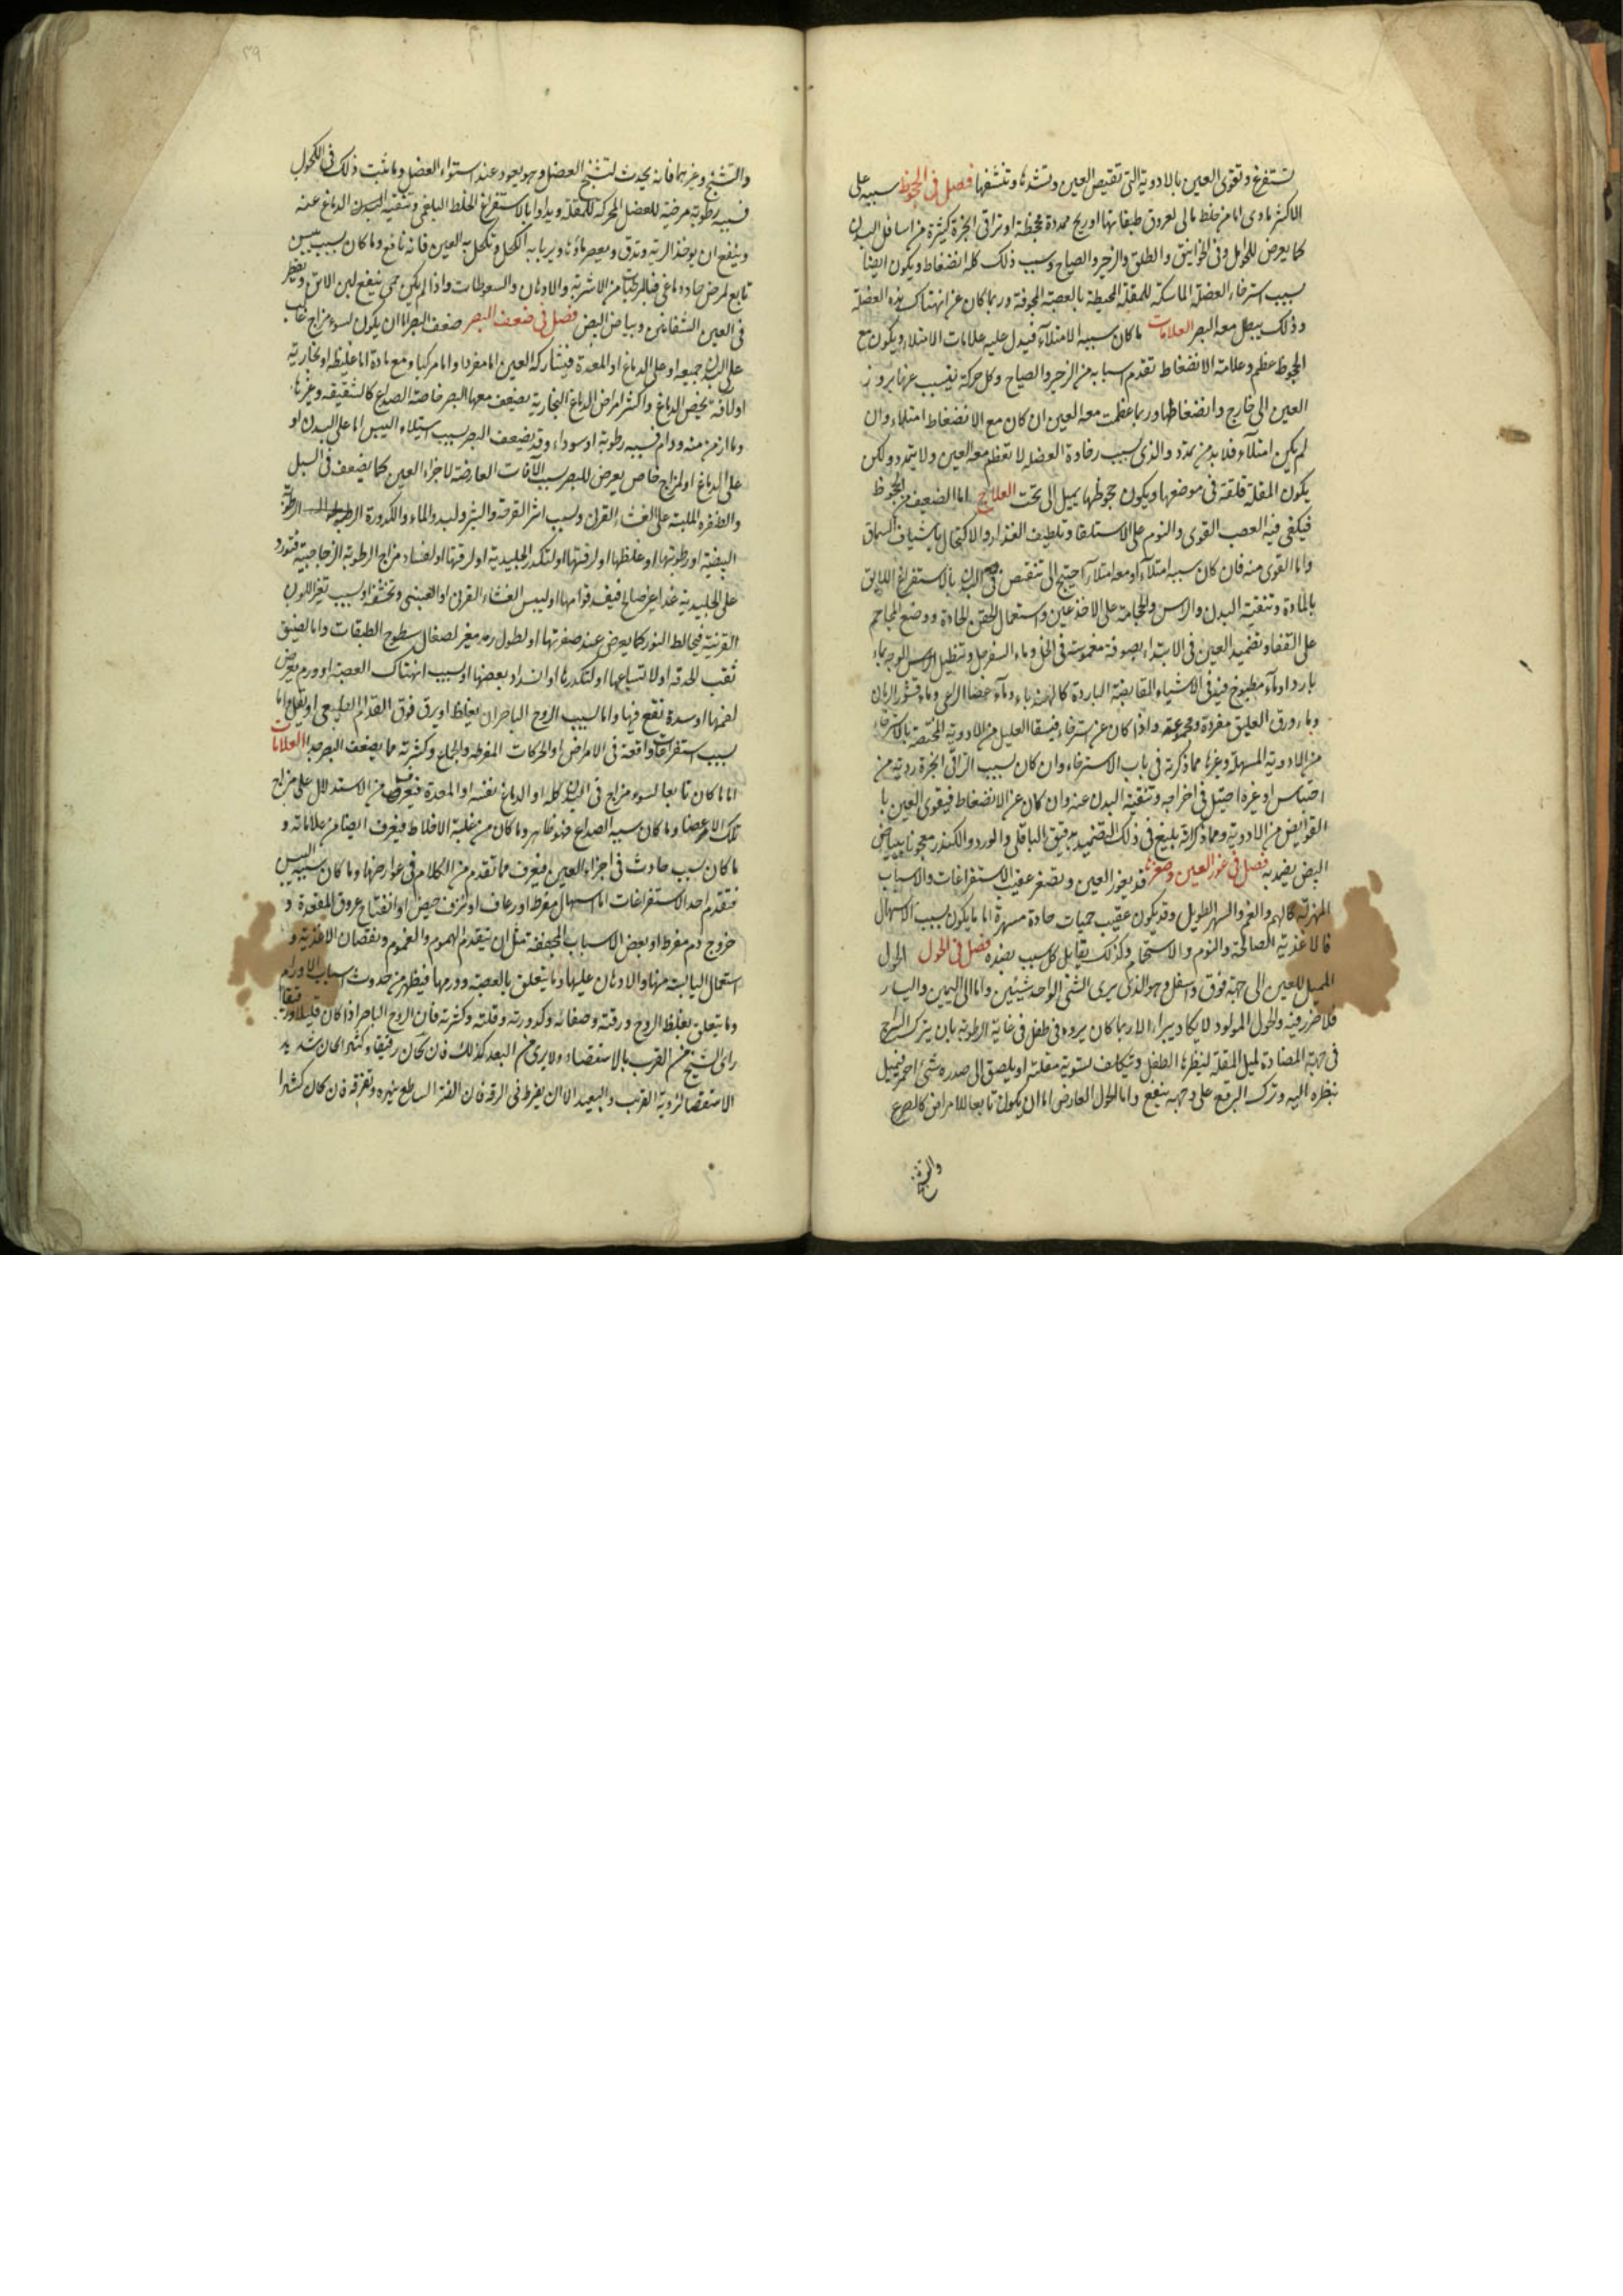 تستفرغ وتقوى العين بالادوية التى تقبض العين وتشدها وتنشفها فصل فى الجحوظ سببه على
الاكثر مادى اما من خلط مالى لعروق طبقاتها او ريح ممددة مجحظة او تراقى ابخرة كثيرة من اسافل البدن
كما يعرض للحوامل وفى الخوانيق والطلق والزحير والصياح وسبب ذلك كله انضغاط ويكون ايضا
بسبب استرخاء العضلة الماسكة للمقلة المحيطة بالعصبة المجوفة وربما كان عن انهتاك هذه العضلة
وذلك يبطل معه البصر العلامات ما كان سببه الامتلاء فيدل عليه علامات الامتلاء ويكون مع
الجحوظ عظم وعلامة الانضغاط تقدم اسبابه من الزحير والصياح وكل حركة بسبب عنها بروز
العين الى خارج وانضغاطها وربما عظمت معه العين ان كان مع الانضغاط امتلاء وان
لم يكن امتلاء فلا بد من تمدد والذى بسبب رخاوة العضلة لا تعظم معه العين ولا يتمدد ولكن
يكون المقلة قلقة فى موضعها ويكون جحوظها يميل الى تحت العلاج اما الضعيف من الجحوظ
فيكفى فيه العصب القوى والنوم على الاستلقا وتلطيف الغذاء والاكتحال باشياف السماق
واما القوى منه فان كان سببه امتلاء او معه امتلاء احتيج الى تنقيص البدن بالاستفراغ اللايق
بالمادة وتنقية البدن والراس والحجامة على الاخدعين واستعمال الحقن الحادة ووضع المحاجم
على القفا وتضميد العين فى الابتداء بصوفة مغموسة فى الخل وماء السفرجل وتنطيل الوجه بماء
بارد او ماء مطبوخ فيه فى الاشياء القابضة الباردة كالهندباء وماء عصا الراعى وماء قشور الرمان
وماء ورق العليق مفردة ومجموعة واذا كان عن استرخاء فيسقا العليل من الادوية المختصة بالاسترخاء
من الادوية المسهلة وغيرها مما ذكرته فى باب الاسترخاء وان كان بسبب تراقى ابخرة ردية من
احتباس او غيره احتيل فى اخراجه وتنقية البدن عنه وان كان عن الانضغاط فيقوى العين با
القوابض من الادوية ومما ذكرته بليغ فى ذلك التضميد بدقيق الباقلى والورد والكندر معجونا ببياض
البيض يضمد به فصل فى غور العين وصغرها قد يغور العين وتصغر عقيب الاستفراغات والاسباب
المهزلة كالهم والغم والسهر الطويل وقد يكون عقيب حميات حادة مسهرة اما ما يكون بسبب الاسهال
فالاغذية الصالحة والنوم والاستحمام وكذلك يقابل كل سبب بضده فصل فى الحول الحول
المميل للعين الى جهة فوق واسفل وهو الذى يرى الشئ الواحد شيئين واما الى اليمين واليسار
فلا ضرر فيه والحول المولود لا يكاد يبراء الا ربما كان بروه فى طفل فى غاية الرطوبة بان يترك السراج
فى جهة المضادة لميل المقلة لينظرها الطفل ويتكلف لتسوية مقلته او يلصق الى صدره شئ احمر فيميل
بنظره اليه وترك البرقع على وجهه ينفع واما الحول العارض اما ان يكون تابعا للامراض كالصرع
والتشنج
٣٩
والتشنج وغيرهما فانه يحدث لتشنج العضل وهو يعود عند استواء العضل وما يثبت ذلك فى الكحول
فسببه رطوبة مرخية للعضل المحركه للمقلة ويداوا بالاستفراغ الخلط البلغمى وتنقية البدن الدماغ عنه
وينفع ان يوخذ الرتة وتدق ويعصر ماؤها ويربا به الكحل وتكحل به العين فانه نافع وما كان بسبب يبس
تابع لمرض حاد دماغى فبالمرطبات من الاشربة والادهان والسعوطات واذا لم يكن حمى ينفع لبن الاتن ويقطر
فى العين الشفانين وبياض البيض فصل فى ضعف البصر ضعف البصر اما ان يكون لسوء مزاج غالب
على البدن جميعه او على الدماغ او المعدة فيشاركه العين اما مفردا واما مركبا ومع مادة اما غليظة او بخارية
او لافة يخص الدماغ واكثر امراض الدماغ البخارية يضعف معها البصر خاصة الصداع كالشقيقة وغيرها
وما ازمن منه ودام فسببه رطوبة او سوداء وقد يضعف البصر بسبب استيلاء اليبس اما على البدن او
على الدماغ او لمزاج خاص يعرض للبصر بسبب الآفات العارضة لاجزاء العين كما يضعف فى السبل
والظفره الملبسة على الغشاء القرنى وبسبب اثر القرحة والبثر ولبدو الماء والكدورة الرطوبة
البيضية او رطوبتها او غلظها او لرقتها او لتكدر الجليدية او لرقتها او لفساد مزاج الرطوبة الزجاجية فتورد
على الجليدية غذا غير صالح فيفسد قوامها او ليبس الغشاء القرنى او العنبى وتخشنه او بسبب تغير اللون
القرنية فيخالط النور كما يعرض عند صفرتها او لطول رمد مغير لصقال سطوح الطبقات واما لضيق
ثقب الحدقه او لاتساعها او لتكدرها او انسداد بعضها او بسبب انهتاك العصبة او ورم يعرض
لفمها او سدة تقع فيها واما لسبب الروح الباصر ان يغلظ او يرق فوق القدر الطبيعى او يقل اما
بسبب استفراغات واقعة فى الامراض او الحركات المفرطه والجماع وكثرته مما يضعف البصر جدا العلامات
اما ما كان تابعا لسوء مزاج فى البدن كله او الدماغ نفسه او المعدة فيعرف من الاستدلال على مزاج
تلك الاعضا وما كان سببه الصداع فهو ظاهر وما كان من غلبة الاخلاط فيعرف ايضا من علاماته و
ما كان بسبب حادث فى اجزاء العين فيعرف مما تقدم من الكلام فى عوارضها وما كان سببه اليبس
فتقدم احد الاستفراغات اما اسهال مفرط او رعاف او نزف حيض او انفتاح عروق المقعدة و
خروج دم مفرط او بعض الاسباب المجففة مثل ان يتقدم الهموم والغموم ونقصان الاغذية و
استعمال اليابسة منها والادمان عليها وما يتعلق بالعصبة وورمها فيظهر من حدوث اسباب الاورام
وما يتعلق بغلظ الروح ورقته وصفائه وكدورته وقلته وكثرته فان الروح الباصر اذا كان قليلا ورقيقا
راى الشبح من القرب بالاستقصاء ولا يرى من البعد كذلك فان كان رقيقا وكثيرا كان شديد
الاستقصا لرؤية القريب والبعيد الا ان يفرط فى الرقة فان الضؤ الساطع يبهره وتفرقه فان كان كثيرا